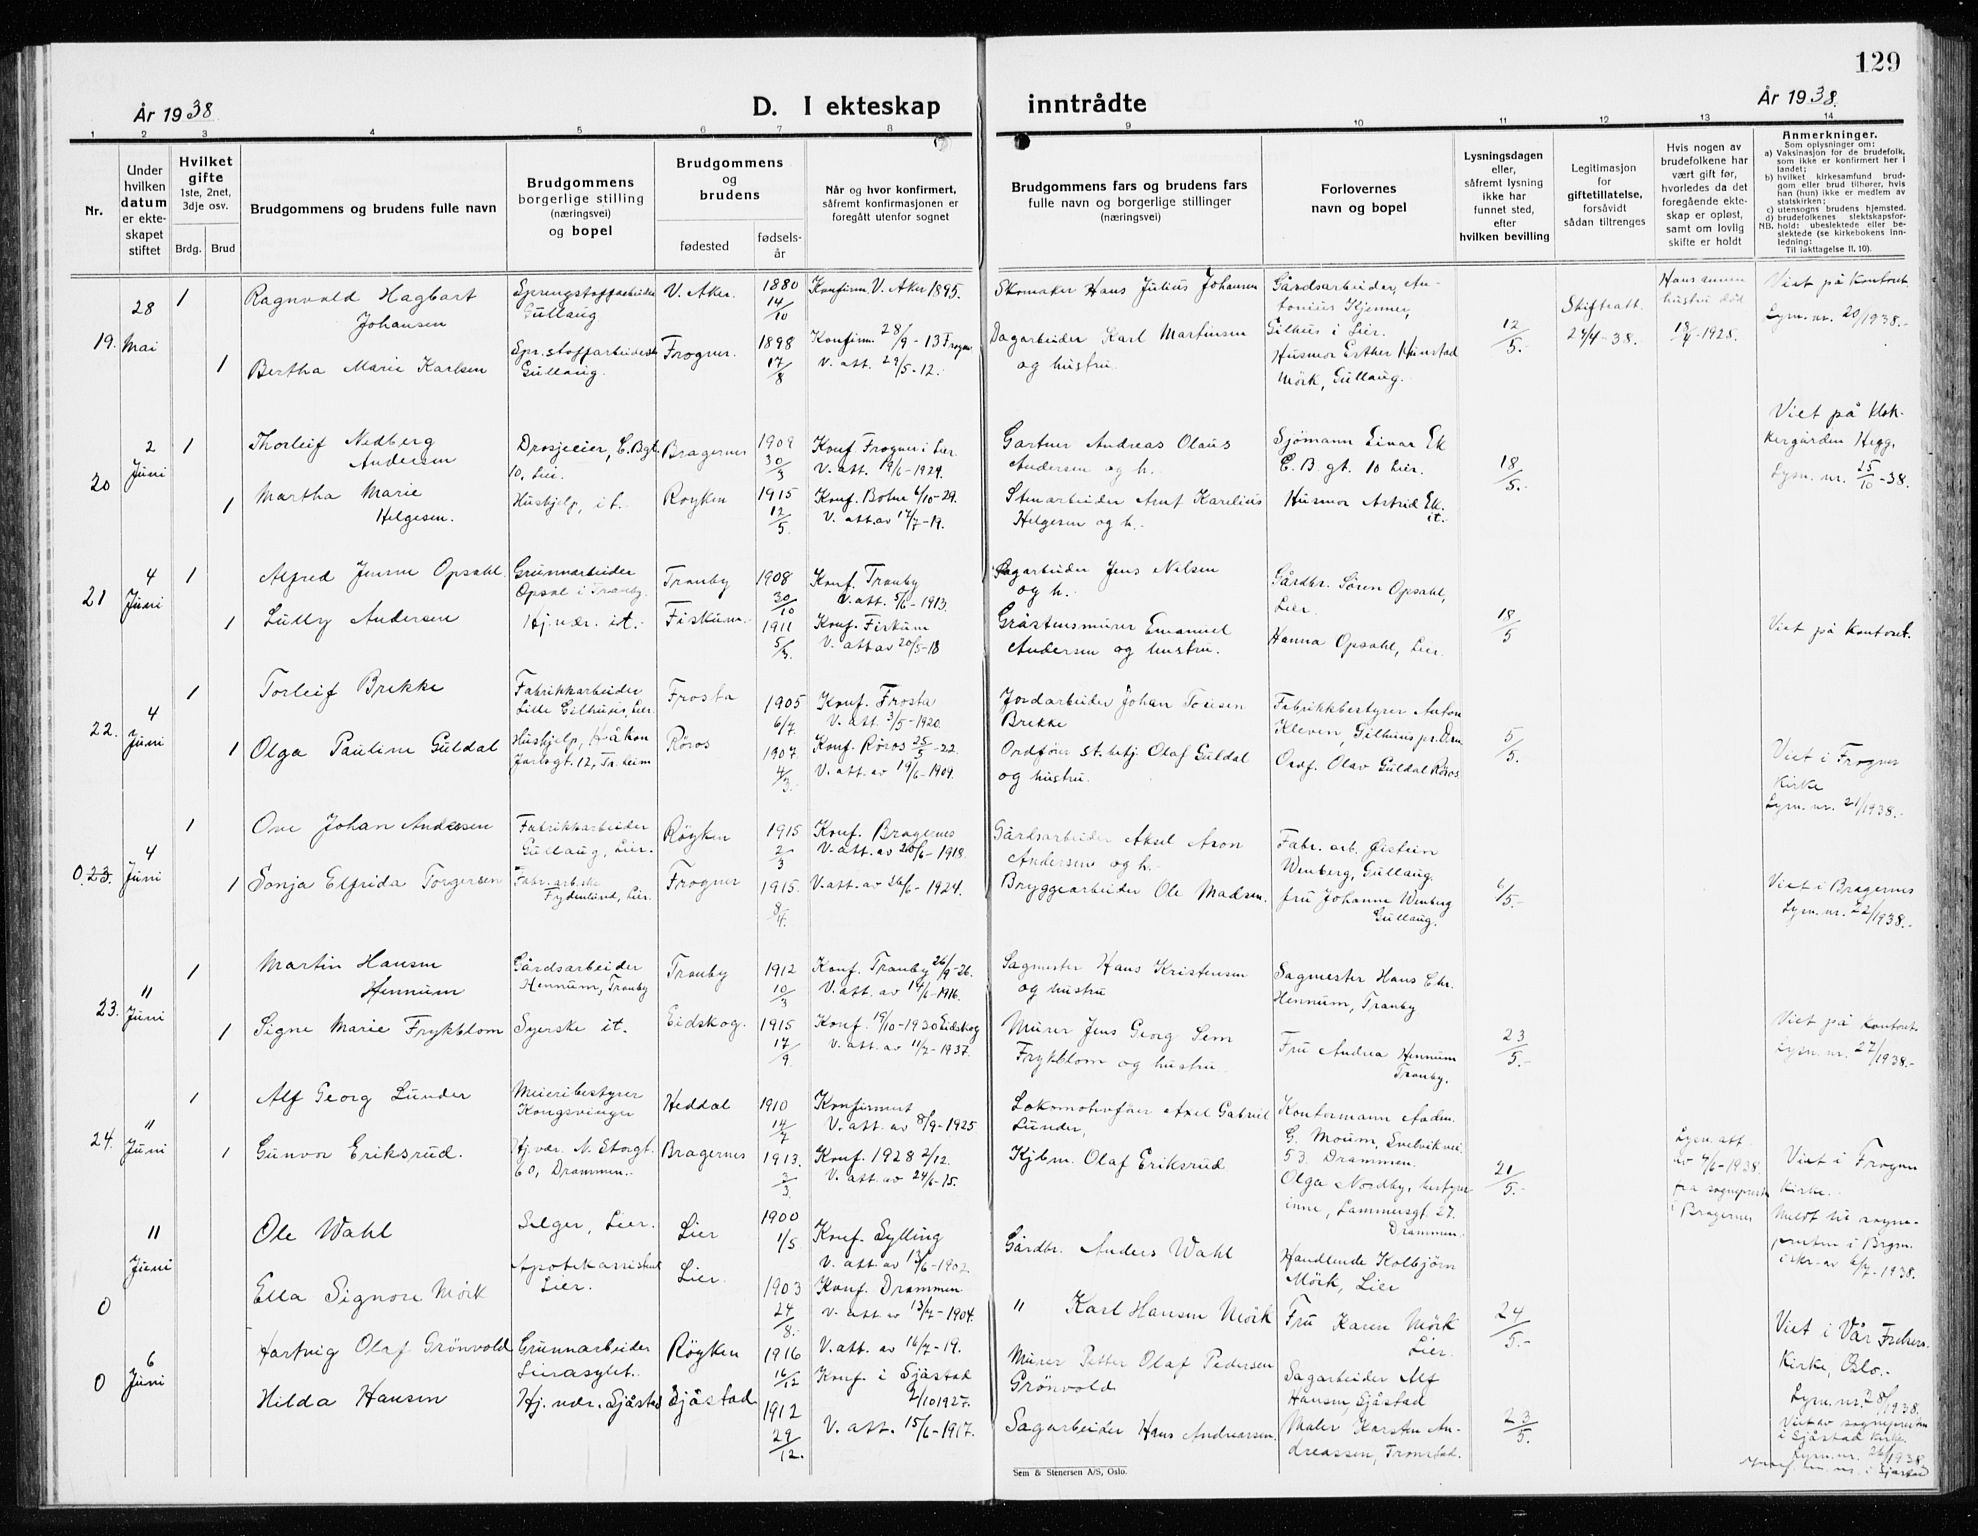 129
År 1938.
D. I ekteskap inntrådte
År 1938.
1 2 3 4 5 6 7 8 9 10 11 12 13 14
Nr.
Under hvilken datum er ekteskapet stiftet
Hvilket gifte
1ste, 2net, 3dje osv.
Brdg. Brud
Brudgommens og brudens fulle navn
Brudgommens borgerlige stilling (næringsvei) og bopel
Brudgommens og brudens
fødested
fødselsår
Når og hvor konfirmert, såfremt konfirmasjonen er foregått utenfor sognet
Brudgommens fars og brudens fars fulle navn og borgerlige stillinger (næringsvei)
Forlovernes navn og bopel
Lysningsdagen eller, såfremt lysning ikke har funnet sted, efter hvilken bevilling
Legitimasjon for giftetillatelse, forsåvidt sådan tiltrenges
Hvis nogen av brudefolkene har vært gift før, hvorledes da det foregående ekteskap er opløst, samt om lovlig skifte er holdt
Anmerkninger.
Som oplysninger om:
a) Vaksinasjon for de brudefolk, som ikke er konfirmert her i landet;
b) hvilket kirkesamfund brudgom eller brud tilhører, hvis han (hun) ikke er medlem av statskirken;
c) utensogns brudens hjemsted.
d) brudefolkenes slektskapsforhold: ubeslektede eller beslektede (se kirkebokens innledning:
NB. Til iakttagelse II, 10).
19. 28 Mai
1 Ragnvald Hagbart Johansen
Sprengstoffarbeider Gullaug
V. Aker.
1880 14/10
Konfirm. V. Aker 1895.
Skomaker Hans Julius Johansen
Gårdsarbeider, Antonius Kjenner, Gilhus i Lier.
12/5.
Skifteatt. 27/4-38.
Hans annen hustru död 18/4-1928.
Viet på kontoret
Lysn. nr. 20/1938.-
1 Bertha Marie Karlsen
Spr.stoffarbeiderske Gullaug.
Frogner.
1898 17/8
Konfirm. 28/9-13 Frogner
V. att. 29/5-12.
Dagarbeider Karl Martinsen og hustru.
Husmor Esther Hunstad Mörk, Gullaug.
20 2 Juni
1 Thorleif Nedberg Andersen
Drosjeeier, E. Bgt. 10, Lier.
Bragernes
1909 30/3
Konf. Frogner i Lier
V. att. 19/6-1924.
Gartner Andreas Olaus Andersen og h.
Sjömann Einar Ek E. B. gt. 10 Lier.
18/5.
Viet på Klokkergården Hegg.
Lysn. nr. 25/10-38.
1 Martha Marie Helgesen.
Hushjelp, i t.
Royken
1915 12/5
Konf. Botne 6/10-29.
V. att. av 17/7-19.
Stenarbeider Arnt Karelius Helgesen og h.
Husmor Astrid Ek. it.
21 4 Juni
1 Alfred Jensen Opsahl
Grunnarbeider Opsal i Tranby.
Tranby
1908 30/10
Konf. Tranby
V. att. 5/6-1913.
Sagarbeider Jens Nelsen og h.
Gårdbr. Søren Opsahl, Lier.
18/5
Viet på kontoret.
1 Lully Andersen
Hj. vær. it.
Fiskum.
1911 5/3.
Konf. Fiskum
V. att av 20/5-18
Gråstensmurer Emanuel Andersen og hustru.
Hanna Opsahl, Lier.
22. 4 Juni
1 Torleif Brekke
Fabrikkarbeider Lille Gilhus, Lier.
Frosta
1905 6/7.
Konf. Frosta
V. att. 3/5-1920.
Jordarbeider Johan Torisen Brekke
Fabrikkbestyrer Anton Kleven, Gilhus pr. Drm.
5/5.
Viet i Frogner Kirke
Lysn. nr. 21/1938.-
1 Olga Pauline Guldal
Hushjelp, Håkon Jarlsgt. 12, Tr.heim
Röros
1907 4/3.
Konf. Röros 25/5-22.
V. att. av 19/6-1909.
Ordfører st. betj. Olaf Guldal og hustru.
Ordf. Olav Guldal Röros
0.23. 4 Juni
1 Ove Johan Andersen
Fabrikkarbeider Gullaug, Lier.
Röyken
1915 2/3
Konf. Bragernes
V. att. av 20/6-1918.
Gårdsarbeider Aksel Aron Andersen og h.
Fabr. arb. Øistein Wenberg, Gullaug.
6/5.-
Viet i Bragernes
Lysn. nr. 22/1938.-
1 Sonja Elfrida Torgersen
Fabr. arb.ske Fydenlund, Lier.
Frogner
1915. 8/4.
V. att. av 26/6-1924.
Bryggearbeider Ole Madsen.
fru Johanne Wenberg Gullaug.
23. 11 Juni
1 Martin Hansen Hennum
Gårdsarbeider Hennum, Tranby
Tranby
1912 10/3
Konf. Tranby 26/9-26.
V. att. av 19/6-1916.
Sagmester Hans Kristensen og hustru
Sagmester Hans Chr. Hennum, Tranby
23/5.-
Viet på kontoret
Lysn. nr. 27/1938.-
1 Signe Marie Frykblom
Syerske it.
Eidskog.
1915 17/9
Konf. 19/10-1930 Eidskog
V. att. av 11/7-1937.
Murer Jens Georg Sem Frykblom og hustru
Fru Andrea Hennum Tranby.
24. 11 Juni
1 Alf Georg Lunder
Meieribestyrer Kongsvinger
Heddal
1910 14/7
Konfirmert
V. att. av 8/9-1925
Lokomotivfører Axel Gabriel Lunder,
Kontormann Aadne G. Moum, Svelvikvei. 53. Drammen.
21/5.-
Lysn. att. av 7/6-1938. fra sogneprest i Bragernes
Viet i Frogner kirke.
Meldt til sognepresten i Brgn. i skr. av 6/7-1938.
1 Gunvor Eriksrud.
Hj. vær. N. Storgt. 60, Drammen.
Bragernes
1913. 2/3.
Konf. 1928 2/12.
V. att. av 24/6-15.
Kjbm. Olaf Eriksrud
Olga Nordby, bestyrerinne, Lammersgt. 27. Drammen.
0 11 Juni
Ole Wahl
Selger, Lier.
Lier
1900 1/5
Konf. Sylling
V. att. av 13/6-1902.
Gårdbr. Anders Wahl
Handlende Kolbjörn Mörk, Lier
24/5.-
Viet i Vår Frelsers Kirke, Oslo.-
Lysn. nr. 28/1938.
Ella Signore Mörk
Lier.
Lier.
1903 24/8.
Konf. Drammen
V. att. av 13/7-1904.
" Karl Hansen Mörk
Fru Karen Mörk Lier.
0 6 Juni
Hartvig Olaf Grönvold
Grunnarbeider Lierasylet.
Röyken
1916 16/12
V. att. av 16/7-19.
Murer Petter Olaf Pedersen Grönvold
Sagarbeider Alf Hansen, Sjåstad
23/5.
Viet av sognepresten i Sjåstad Kirke
Lysn. nr. 26/1938.
Hilda Hansen
Hj. vær. Sjåstad
Sjåstad
1912 29/12.
Konf. i Sjåstad 2/10 1927.
V. att. 15/6-1917.
Sagarbeider Hans Andreassen.
Maler Karsten Andreassen, Tronstad.
Sem & Stenersen A/S, Oslo.